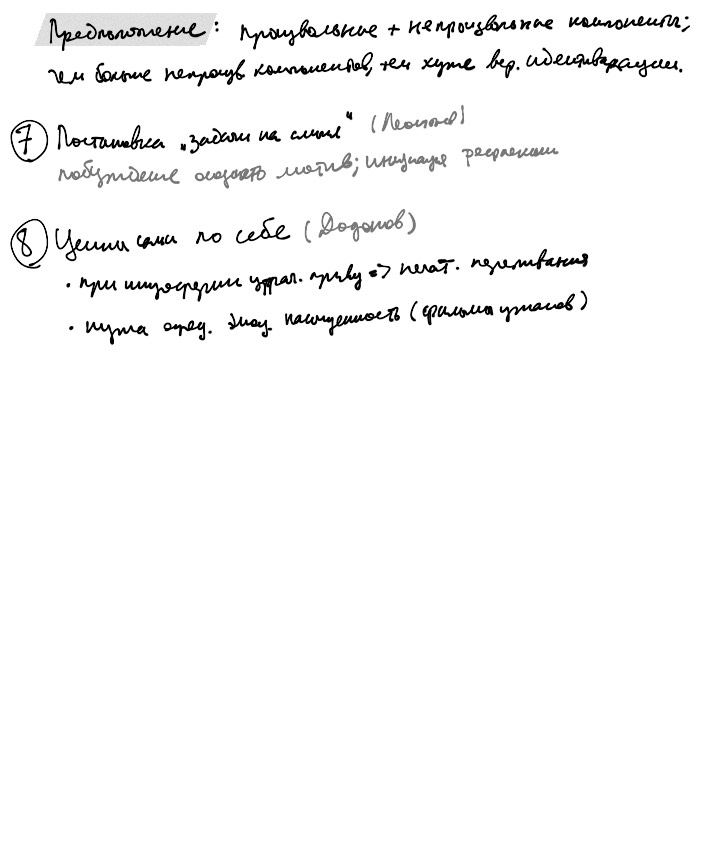 Предположение: произвольные + непроизвольные компоненты;
чем больше непроизв компонентов, тем хуже вер. идентификации.
⑦ Постановка „задачи на смысл" (Леонтьев)
побуждение осознать мотив; инициация рефлексии
⑧ Ценны сами по себе (Додонов)
• при => негат. переживания
• нужна опред. эмоц. насыщенность (фильмы ужасов)